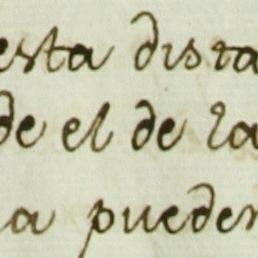 esta dista
de el de la
a pueden